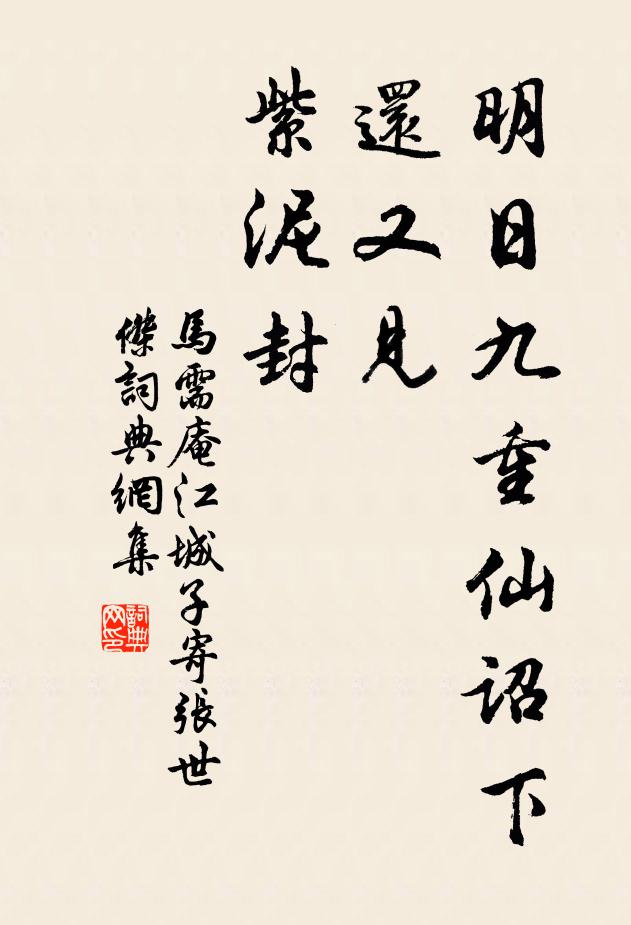 明日九重仙詔下
還又見
紫泥封
馬需庵江城子寄張世
傑詞典網集
詞典
网印